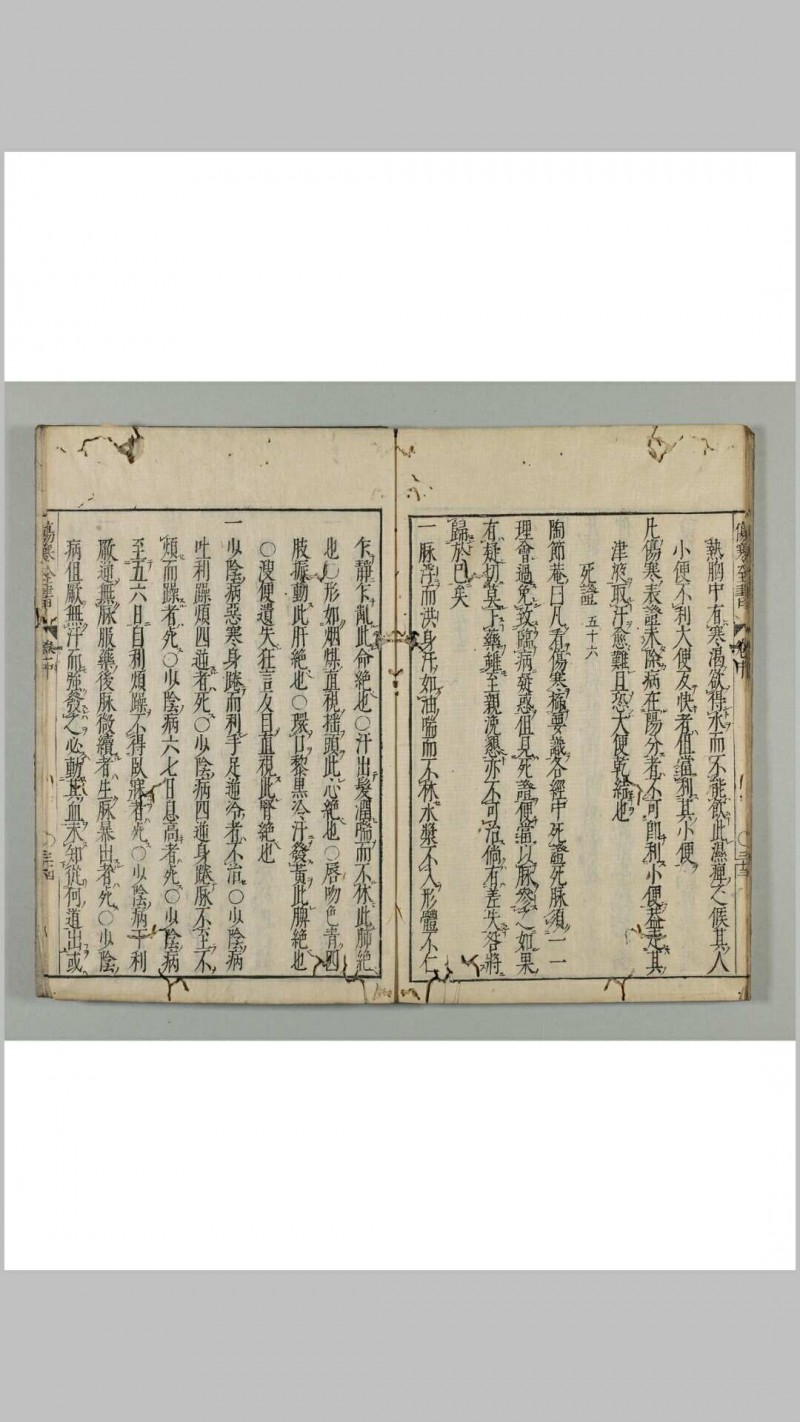 熱胸中有寒渴欲得水而不能飲此濕痺之候其人
小便不利大便反快者但當利其小便
凡傷寒表證未除病在陽分者不可即利小便蓋走其
津液取汗愈難且恐大便乾結也
死證 五十六
陶節菴曰凡看傷寒極要識各經中死證死脉須一一
理會過免致臨病疑惑但見死證便當以脉參之如果
有疑切莫下藥雖至親浼懇亦不可治倘有差失咎將
歸於己矣
一脉浮而洪身汗如油喘而不休水漿不入形體不仁
乍靜乍亂此命絶也○汗出髮潤喘而不休此肺絶
也○形如烟煤直視揺頭此心絶也○唇吻色青四
肢振動此肝絶也○環口黎黒冷汗發黄此脾絶也
○溲便遺失狂言反目直視此腎絶也
一少陰病惡寒身踡而利手足逆冷者不治○少陰病
吐利躁煩四逆者死○少陰病四逆身踡脉不至不
煩而躁者死○少陰病六七日息高者死○少陰病
至五六日自利煩躁不得臥寐者死○少陰病下利
厥逆無脉服藥後脉微續者生脉暴出者死○少陰
病但厥無汗而強發之必動其血未知從何道出或
傷寒全書